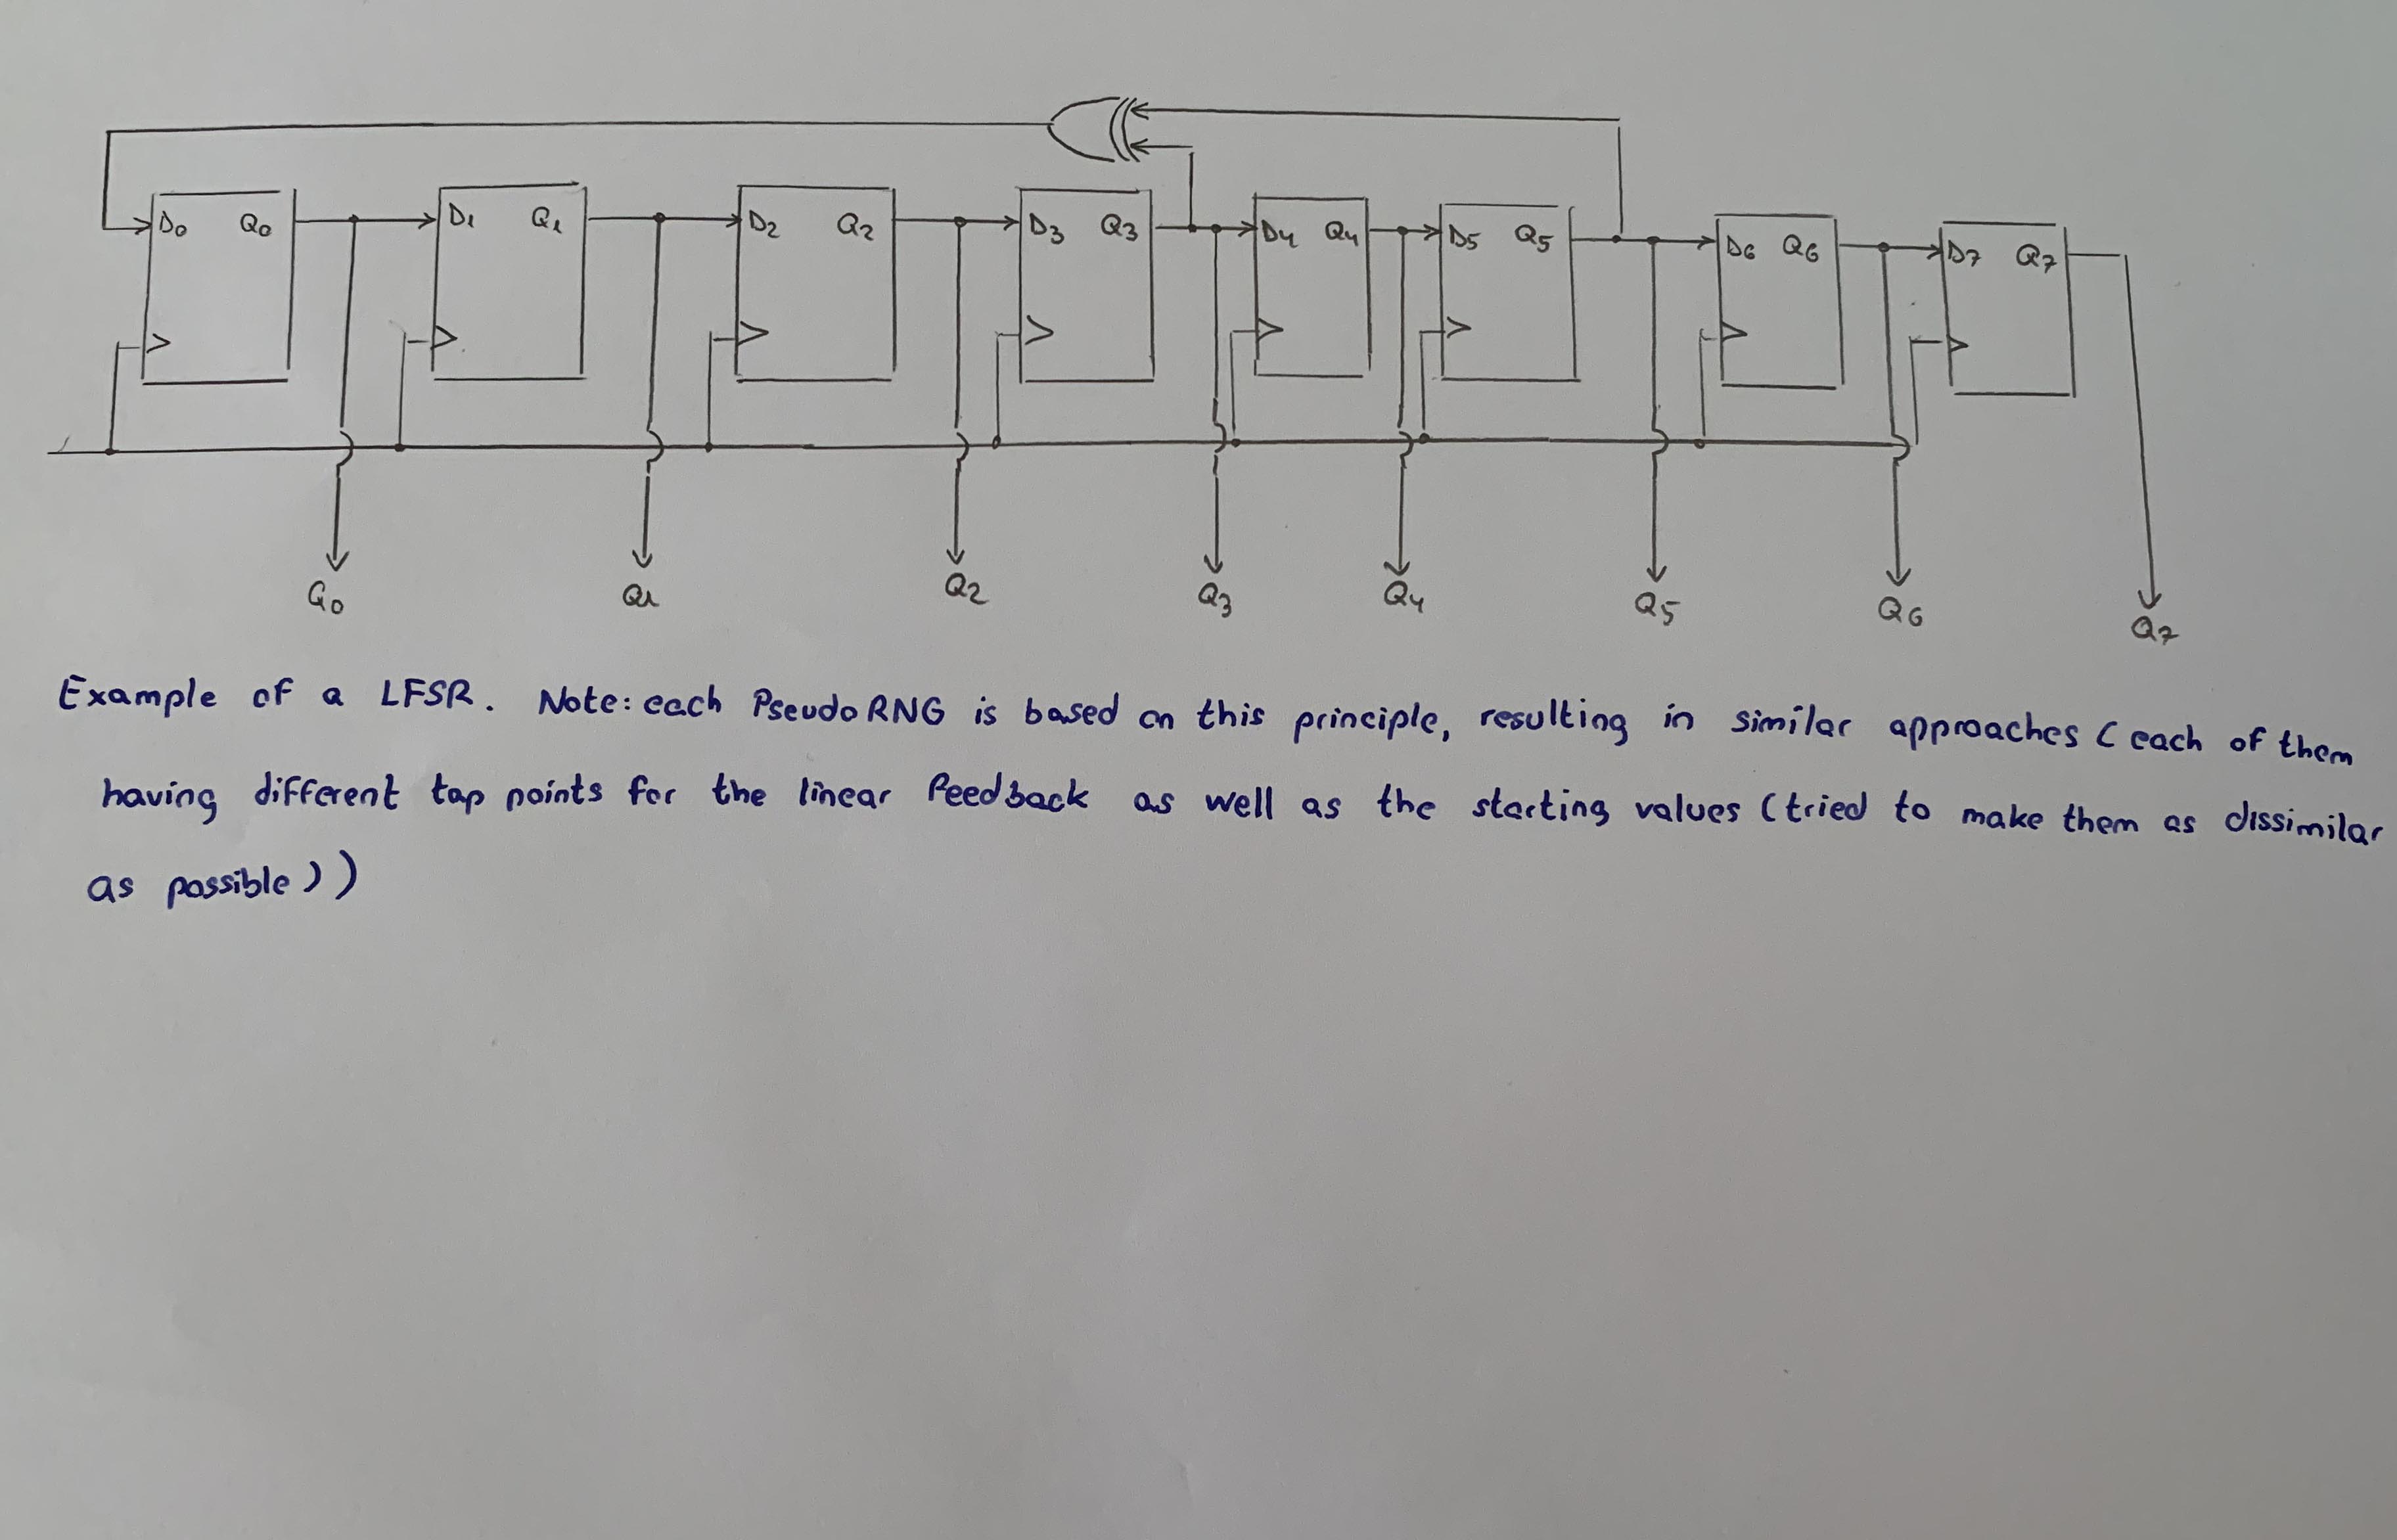 D0 Q0 D1 Q1 D2 Q2 D3 Q3 D4 Q4 D5 Q5 D6 Q6 D7 Q7
Q0 Q1 Q2 Q3 Q4 Q5 Q6 Q7
Example of a LFSR. Note: each PseudoRNG is based on this principle, resulting in similar approaches (each of them
having different tap points for the linear feedback as well as the starting values (tried to make them as dissimilar
as possible))